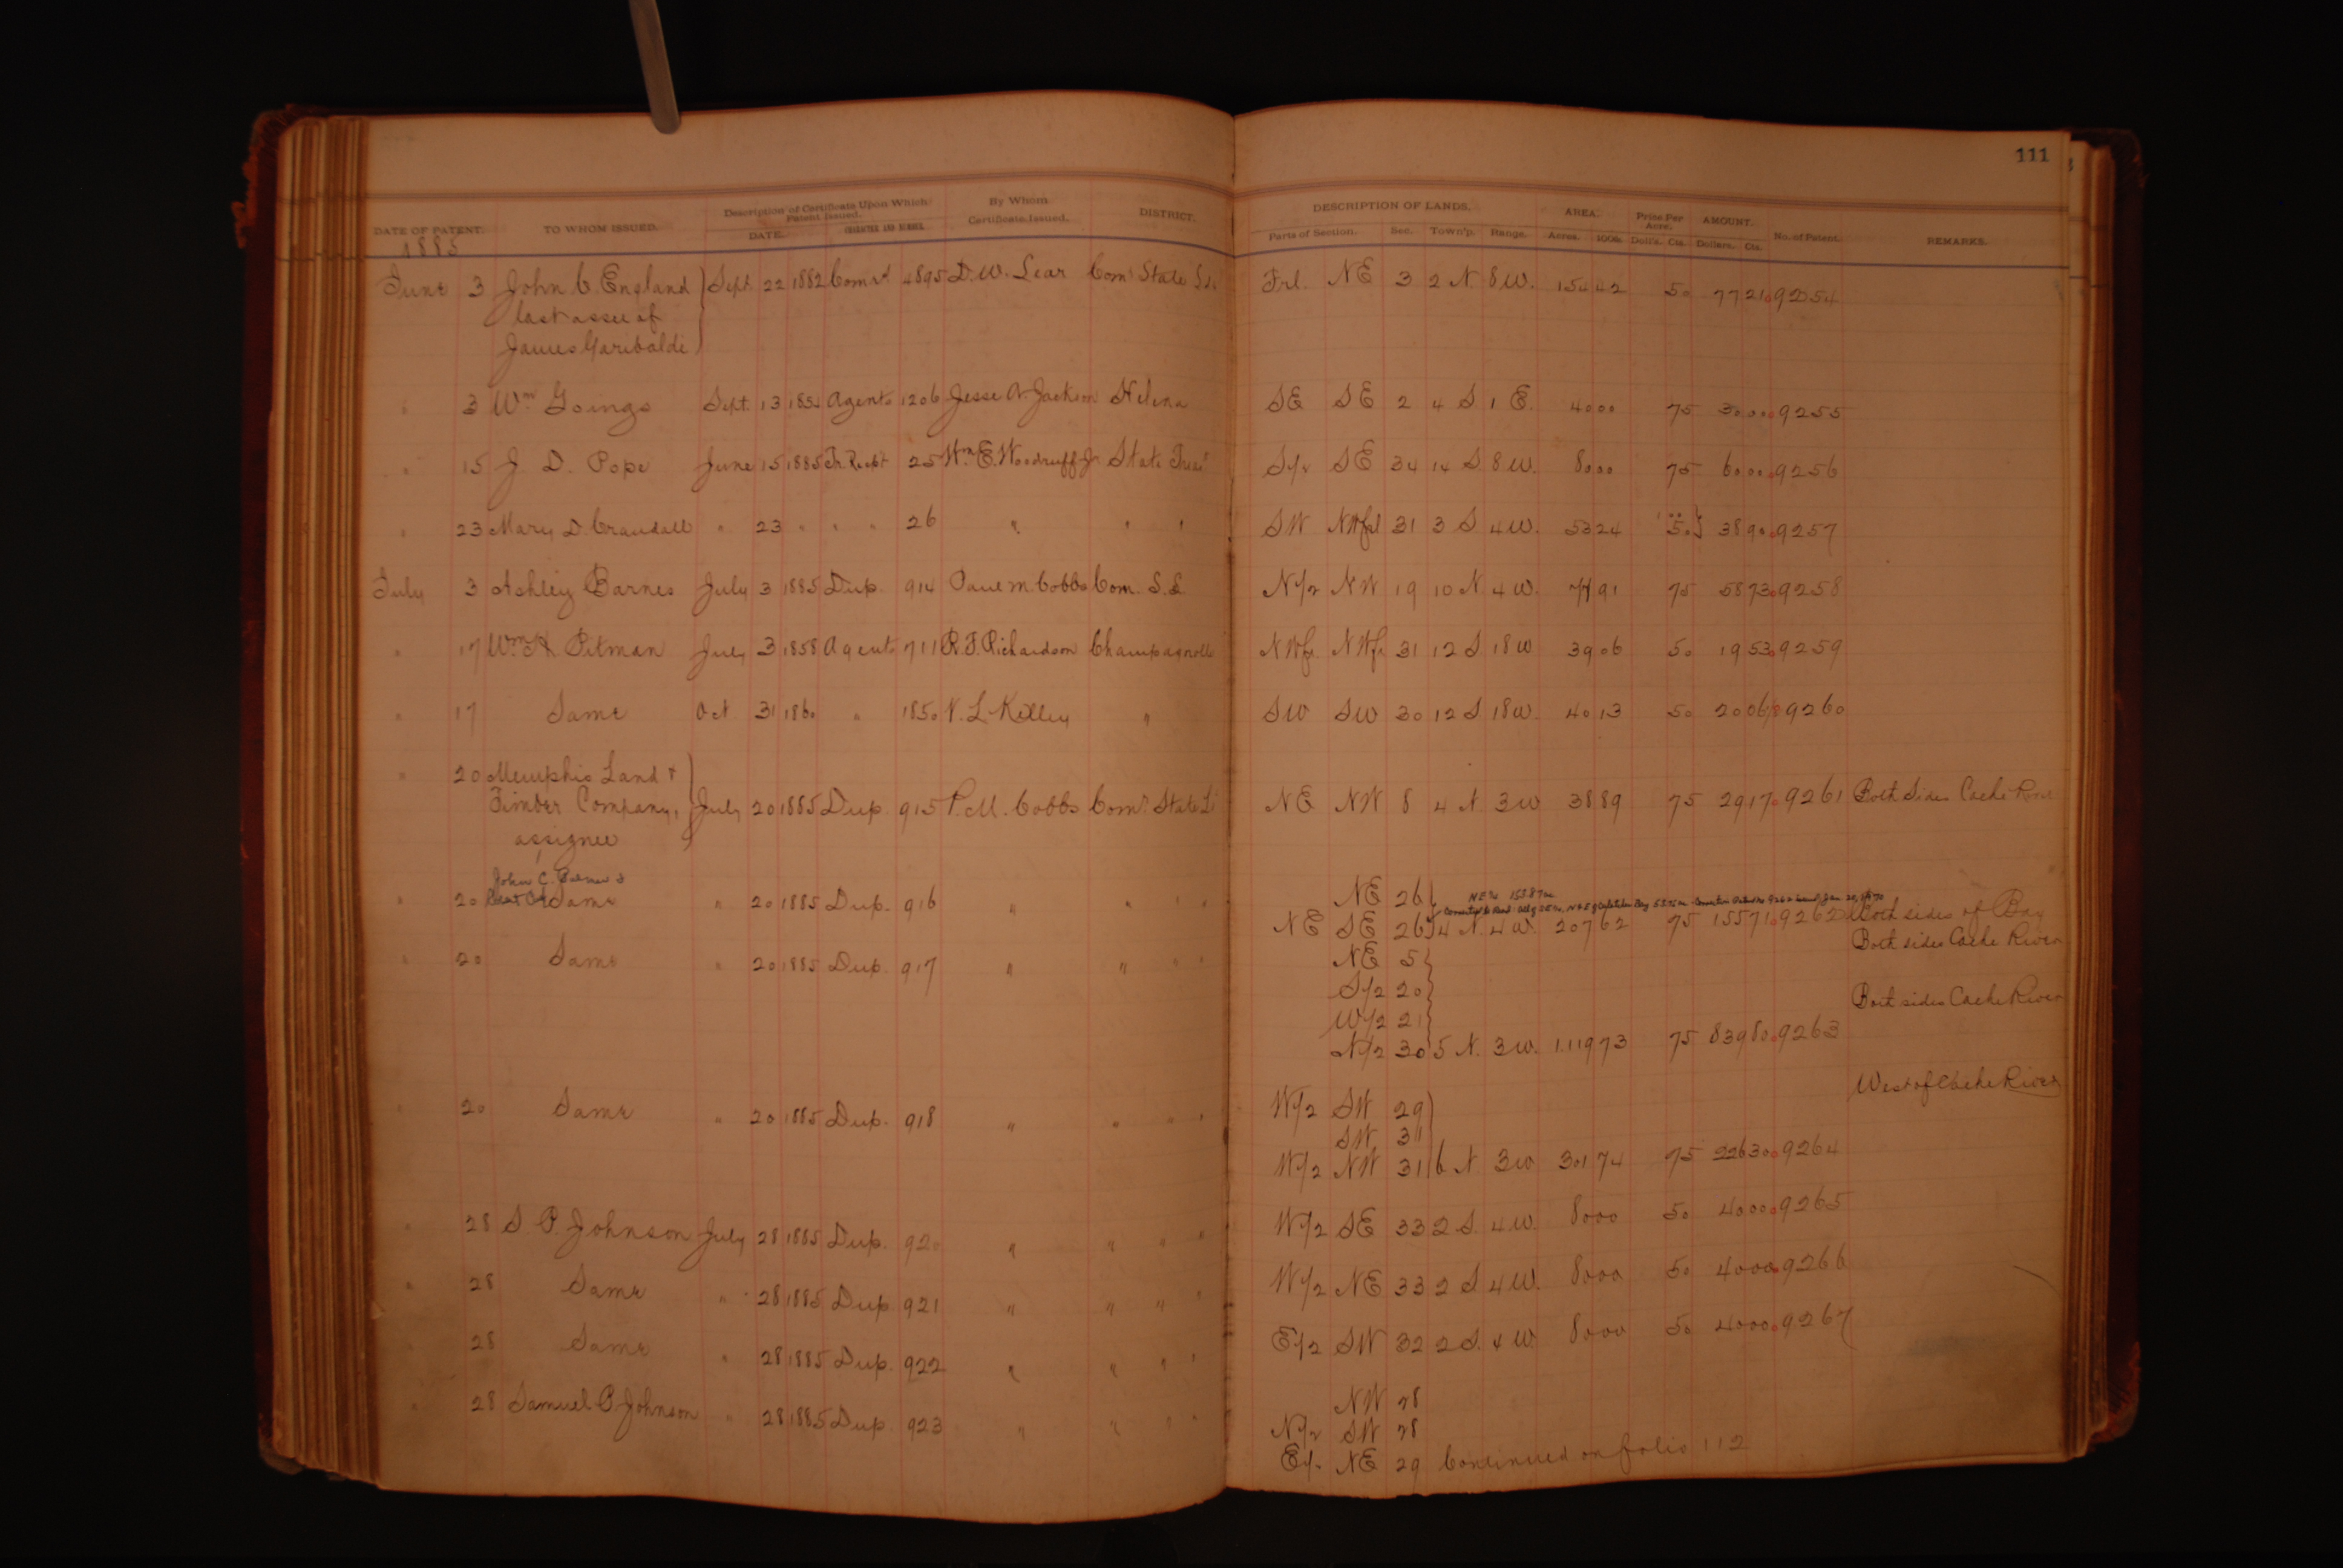 111
DATE OF PATENT. TO WHOM ISSUED. Description of Certificate Upon Which Patent Issued. DATE. CHARACTER AND NUMBER. By Whom Certificate Issued. DISTRICT. DESCRIPTION OF LANDS. Parts of Section. Sec. Town'p. Range. AREA. Acres. 100ths. Price Per Acre. Doll's. Cts. AMOUNT. Dollars. Cts. No. of Patent. REMARKS.
1885
June 3 John C. England Sept. 22 1882 4895 D. W. Lear Com State Frl. NE 3 2 N. 8 W. 154 42 50 77 21 9254
last assee of
James Garibaldi
" 3 Wm. Goings Sept. 13 Agents 1206 Jesse A. Jackson Helena SE SE 2 4 S 1 E. 40 00 75 30 00 9255
" 15 J. D. Pope June 15 1885 Tr. Recpt 25 Wm. E. Woodruff Jr State Treas S/2 SE 34 14 S 8 W. 80 00 75 60 00 9256
" 23 Mary D. Crandall " 23 " " " 26 " " " SW NWfrl 31 3 S 4 W. 53 24 50 38 90 9257
July 3 Ashley Barnes July 3 1885 Dup. 914 Paul M. Cobbs Com. S. L. N/2 NW 19 10 N. 4 W. 91 75 58 73 9258
" 17 Wm H. Pitman July 3 1858 Agents 711 R. F. Richardson Champagnolle NWfr NWfr 31 12 S 18 W 39 06 50 19 53 9259
" 17 Same Oct 31 1860 " 1850 L. Kelley " SW SW 30 12 S 18 W. 40 13 50 20 06 9260
" 20 Memphis Land &
Timber Company, July 20 1885 Dup. 915 P. M. Cobbs Com. State NE NW 8 4 N. 3 W 38 89 75 29 17 9261 Both Sides Cache River
assignee
John C. &
" 20 Same " 20 1885 Dup. 916 " " " " NE 26
NE SE 26 4 N. 4 W. 207 62 75 155 71 9262 Both sides of Bay
Both sides Cache River
" 20 Same " 20 1885 Dup. 917 " " " " NE 5
S/2 20
Both sides Cache River
W/2 21
N/2 30 5 N. 3 W. 1.119 73 75 839 80 9263
West of Cache River
" 20 Same " 20 1885 Dup. 918 " " " " W/2 SW 29
SW 31
W/2 NW 31 6 N 3 W 301 74 75 226 30 9264
" 28 S. P. Johnson July 28 1885 Dup. 920 " " " " W/2 SE 33 2 S. 4 W. 80 00 50 40 00 9265
" 28 Same " 28 1885 Dup. 921 " " " " W/2 NE 33 2 S 4 W. 80 00 50 40 00 9266
" 28 Same " 28 1885 Dup. 922 " " " " E/2 SW 32 2 S. 4 W. 80 00 50 40 00 9267
" 28 Samuel P. Johnson " 28 1885 Dup. 923 " " " " NW 28
N/2 SW 28
E/2 NE 29 Continued on folio 112